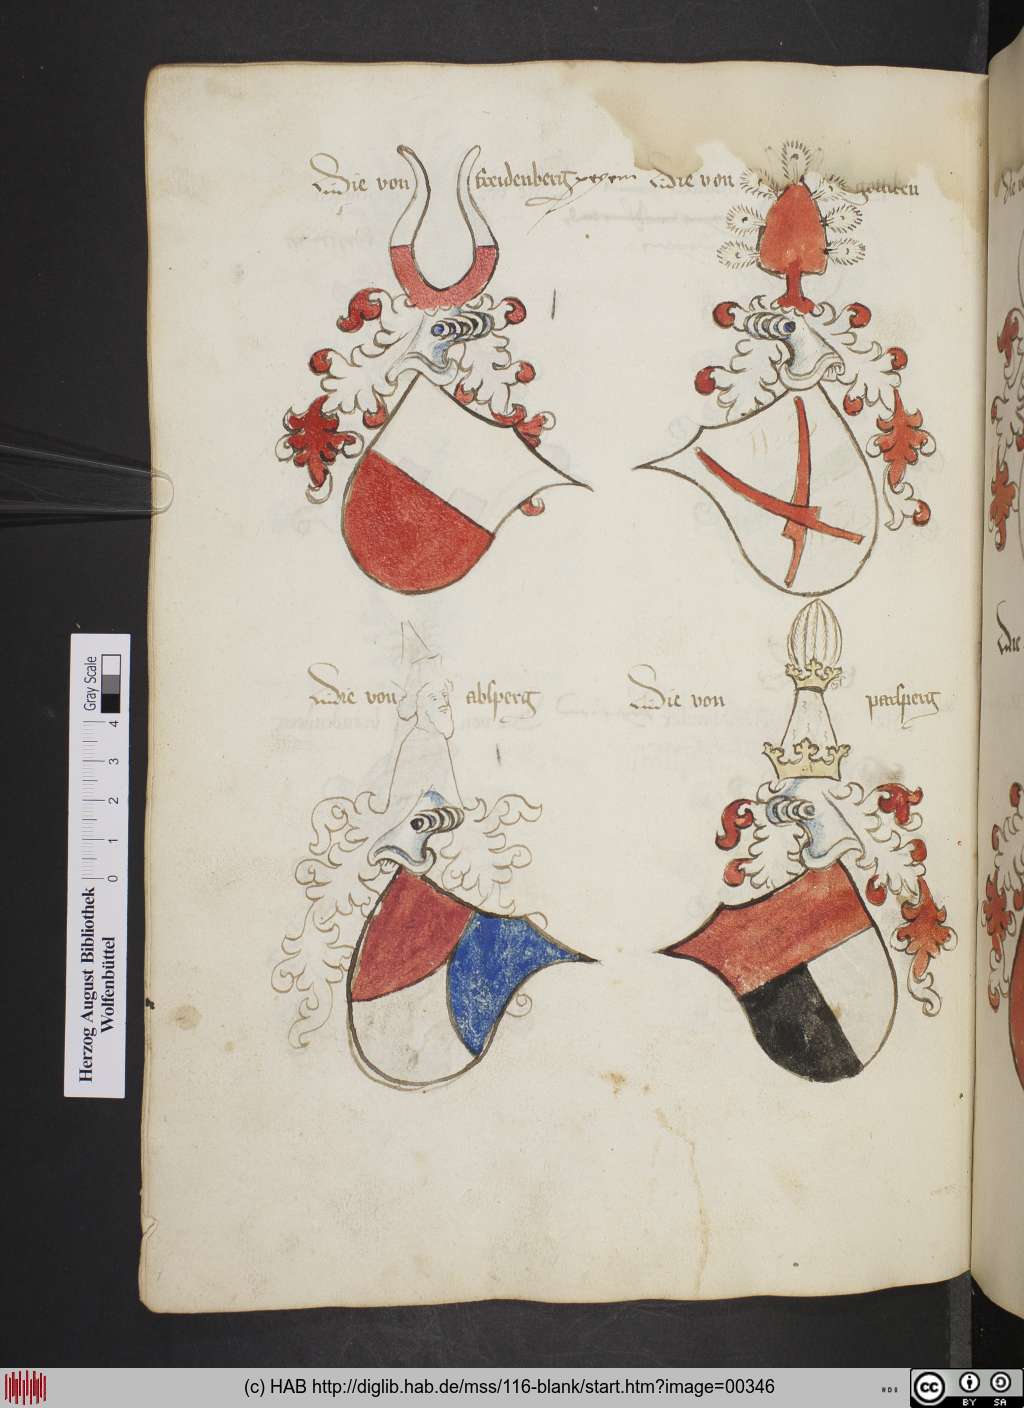 Die von freidenberg peyern
Die von
Die von absperg
Die von parsperg
Die
Gray Scale
0 1 2 3 4
Herzog August Bibliothek
Wolfenbüttel
(c) HAB http://diglib.hab.de/mss/116-blank/start.htm?image=00346
cc BY SA